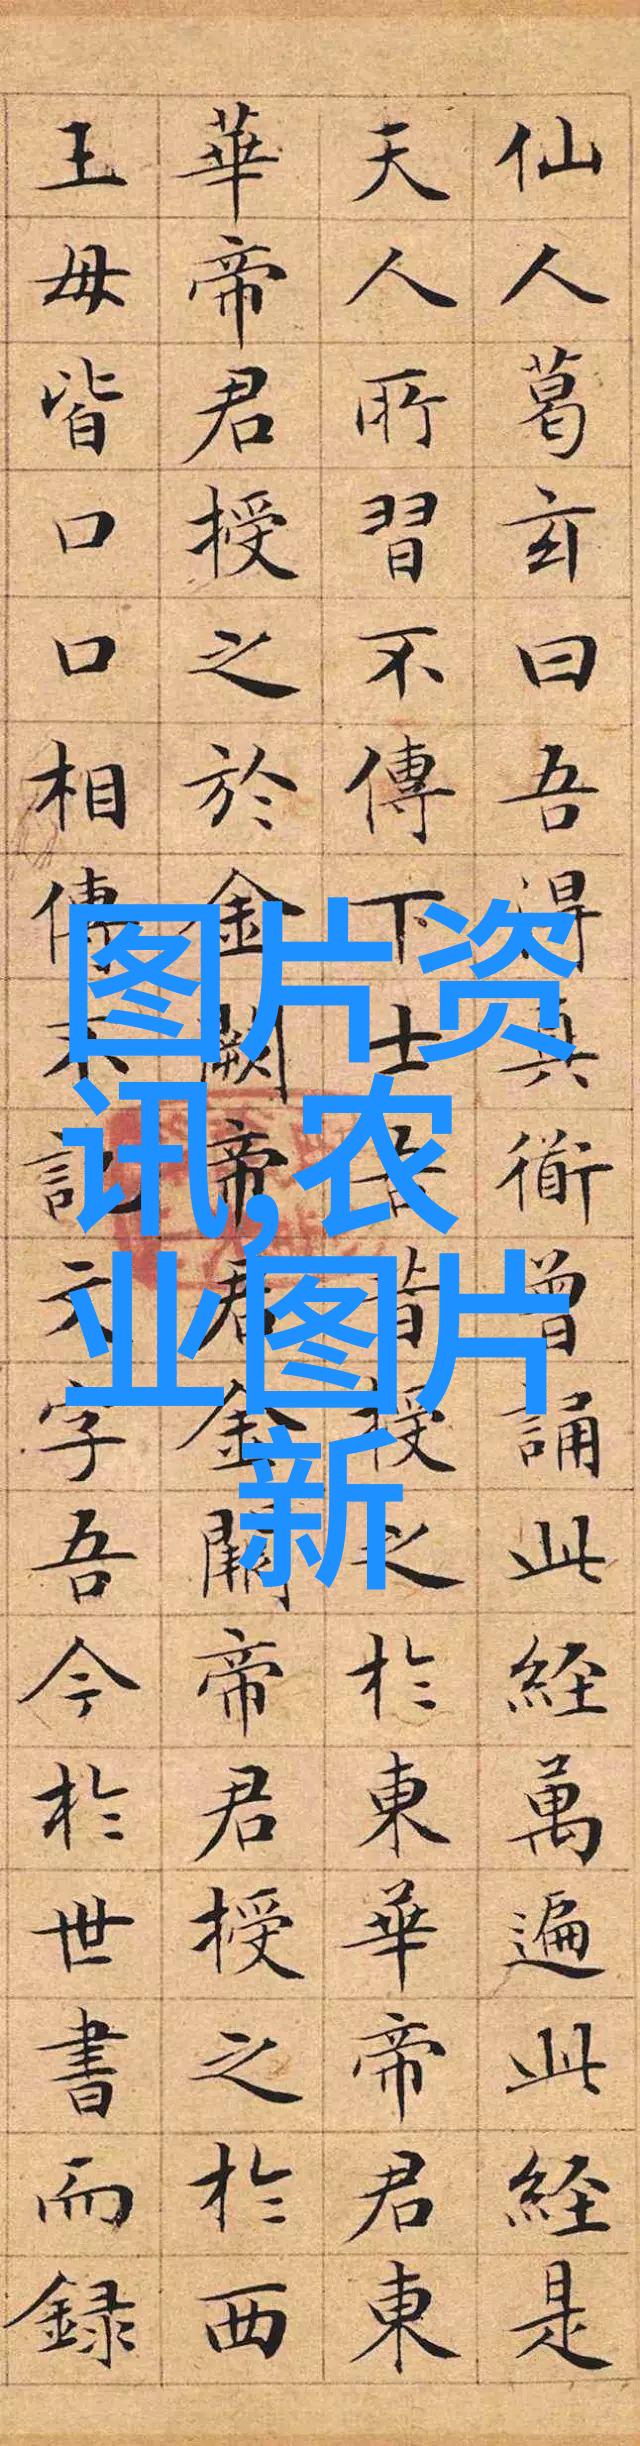 仙人葛玄曰吾得真衜曾誦此経萬遍此経是
天人所習不傳下士吾昔授之於東華帝君東
華帝君授之於金闕帝君金闕帝君授之於西
王母皆口口相傳不記文字吾今於世書而録
图片资
讯,农
业图片
新